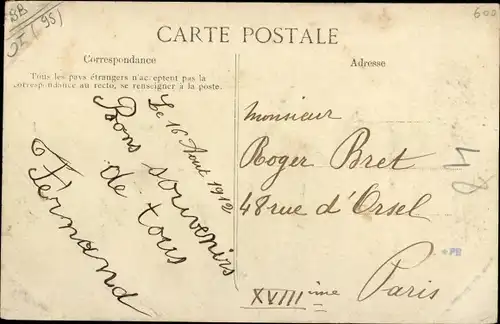 CARTE POSTALE
Correspondance
Tous les pays étrangers n'acceptent pas la
correspondance au recto, se renseigner à la poste.
Le 16 Août 1912
Bons souvenirs
de tous
Fernand
Adresse
Monsieur
Roger Bret
48 rue d'Orsel
Paris
XVIIIième
BB
(95)
600
PB